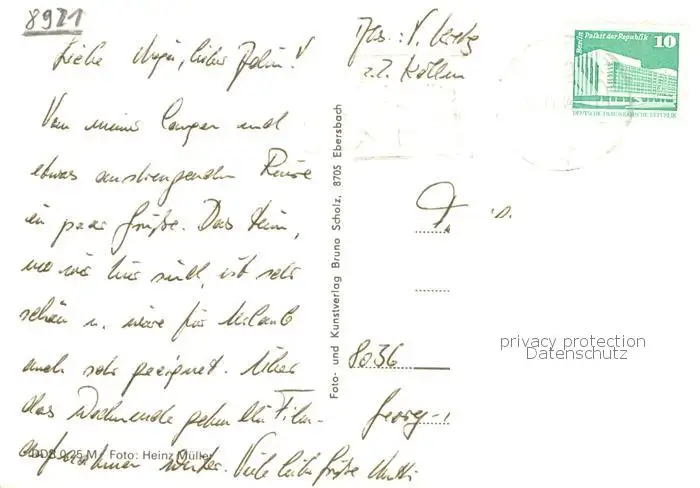 8921
Liebe lieber
Von meiner langen und
etwas anstrengenden Reise
ein paar Grüße. Das Heim,
wo wir hier sind, ist sehr
schön u. wäre für Urlaub
auch sehr geeignet. Über
das Wochenende gehen die Film-
aufnahmen weiter. Viele liebe Grüße
DDS 0,25 M Foto: Heinz Müller
Foto- und Kunstverlag Bruno Scholz, 8705 Ebersbach
Abs.: V.
z.Z.
Berlin Palast der Republik 10
DEUTSCHE DEMOKRATISCHE REPUBLIK
8036
Georg-
privacy protection
Datenschutz